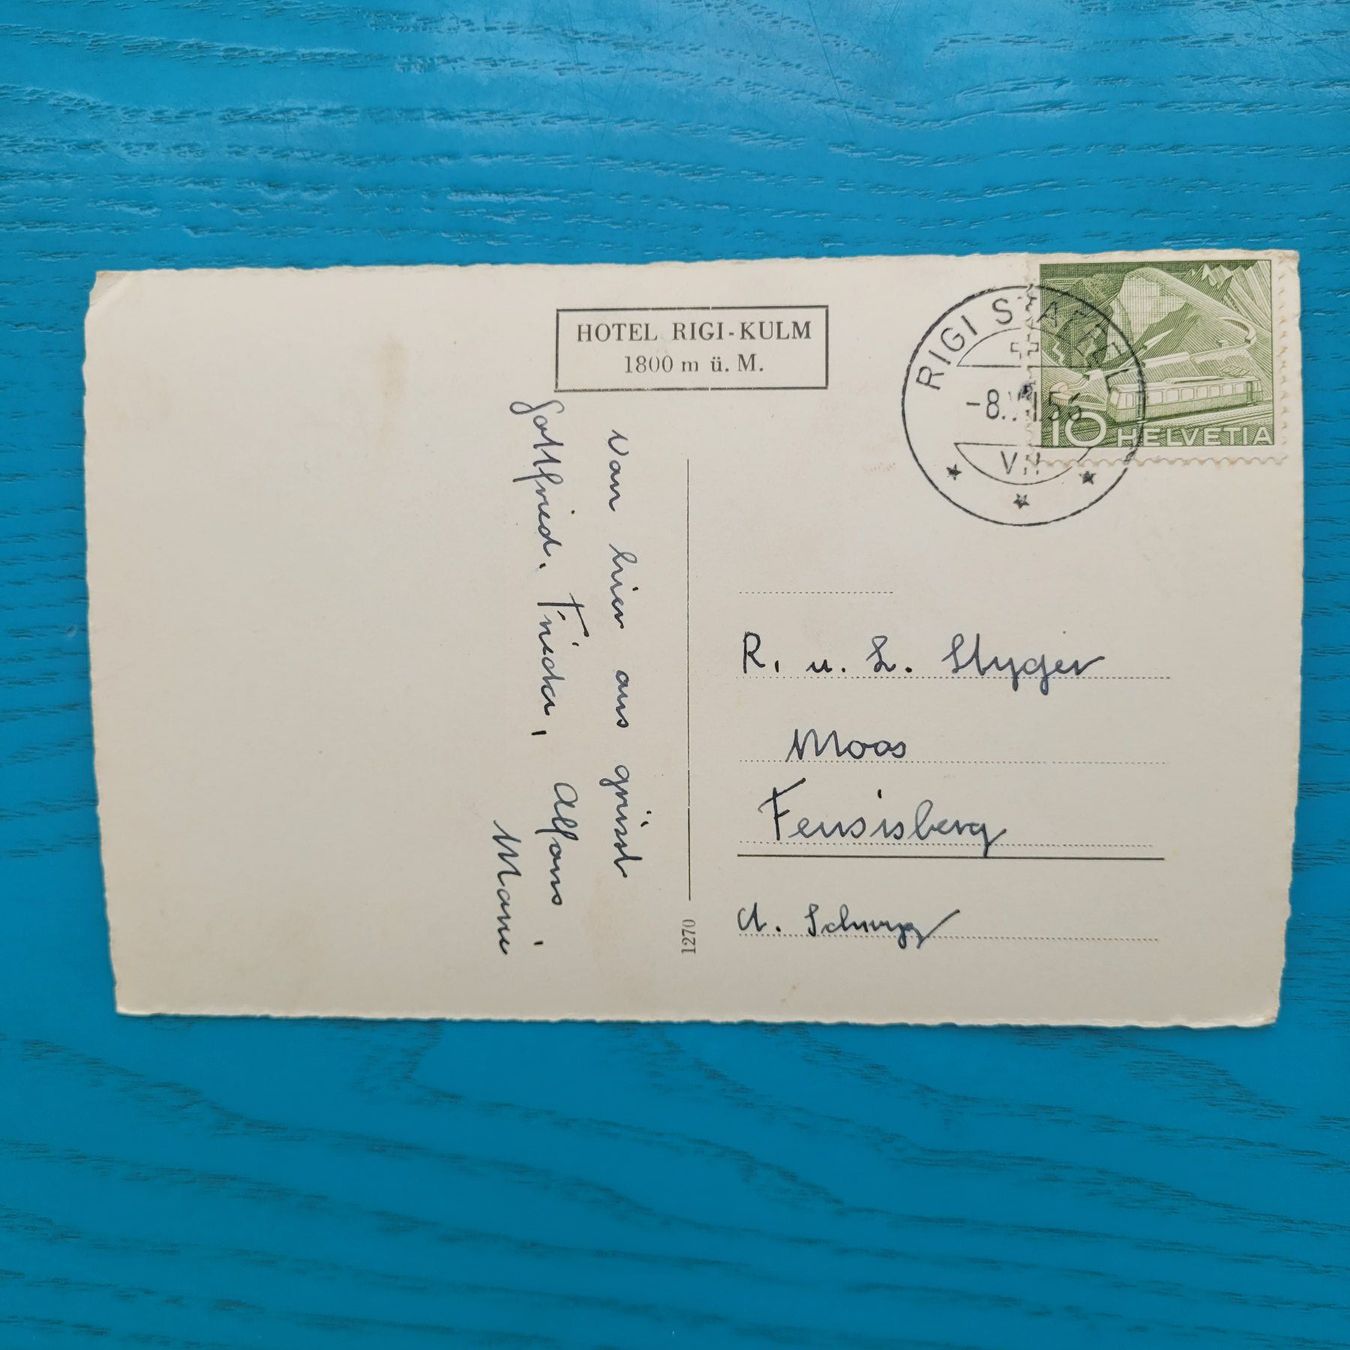 HOTEL RIGI-KULM
1800 m ü. M.
von hier aus grüsst
Gottfried. Frieda, Alfons,
Marie
1270
RIGI STAFFEL
-8.VII.56
VII
10 HELVETIA
R. u. L. Styger
Moos
Feusisberg
Ct. Schwyz